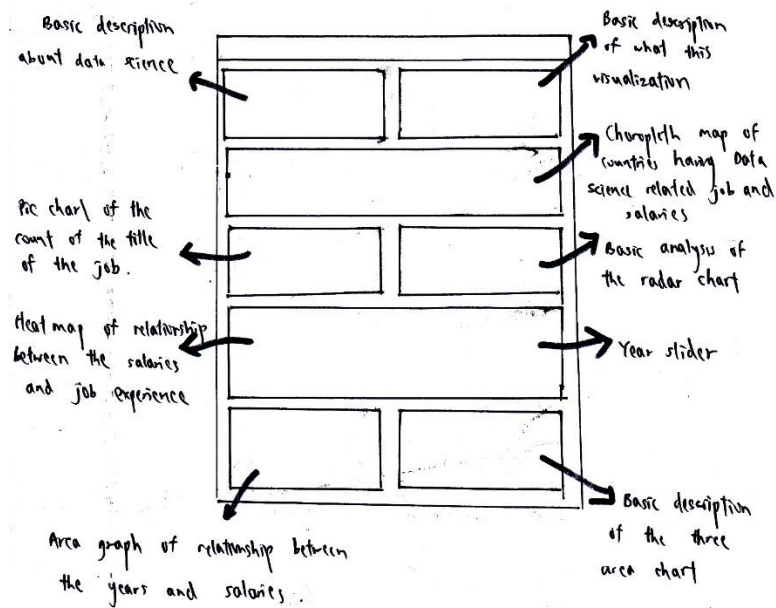 Basic description
about data science
Basic description
of what this
visualization
Choropleth map of
countries having Data
science related job and
salaries
Pie chart of the
count of the title
of the job.
Basic analysis of
the radar chart
Heat map of relationship
between the salaries
and job experience
Year slider
Area graph of relationship between
the years and salaries.
Basic description
of the three
area chart